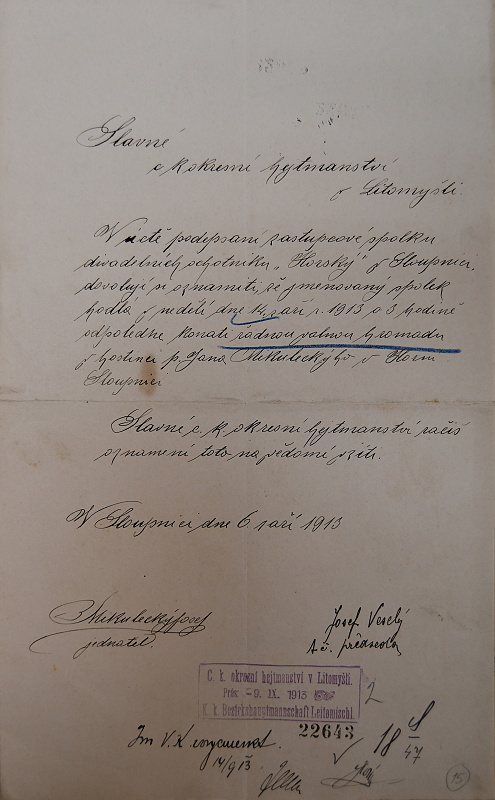 Slavné
c k okresní hejtmanství
v Litomyšli.
V úctě podepsaní zastupcové spolku
divadelních ochotníku „Horský" v Sloupnici,
dovolují si oznámiti, že jmenovaný spolek
hodlá v neděli dne 14. září r. 1913 o 3 hodině
odpoledne konati řádnou valnou hromadu
v hostinci p. Jana Mikuleckýho v Horní
Sloupnici
Slavné c. k okresní hejtmanství račiš
oznámení toto na vědomí vzíti.
V Sloupnici dne 6. září 1913
Mikulecký Josef
jednatel.
Josef Veselý
t. č. předseda
C. k. okresní hejtmanství v Litomyšli.
Präs: -9. IX. 1913
K. k. Bezirkshauptmannschaft Leitomischl.
22643
2
18 47
Im V. K.
14/9 13
15